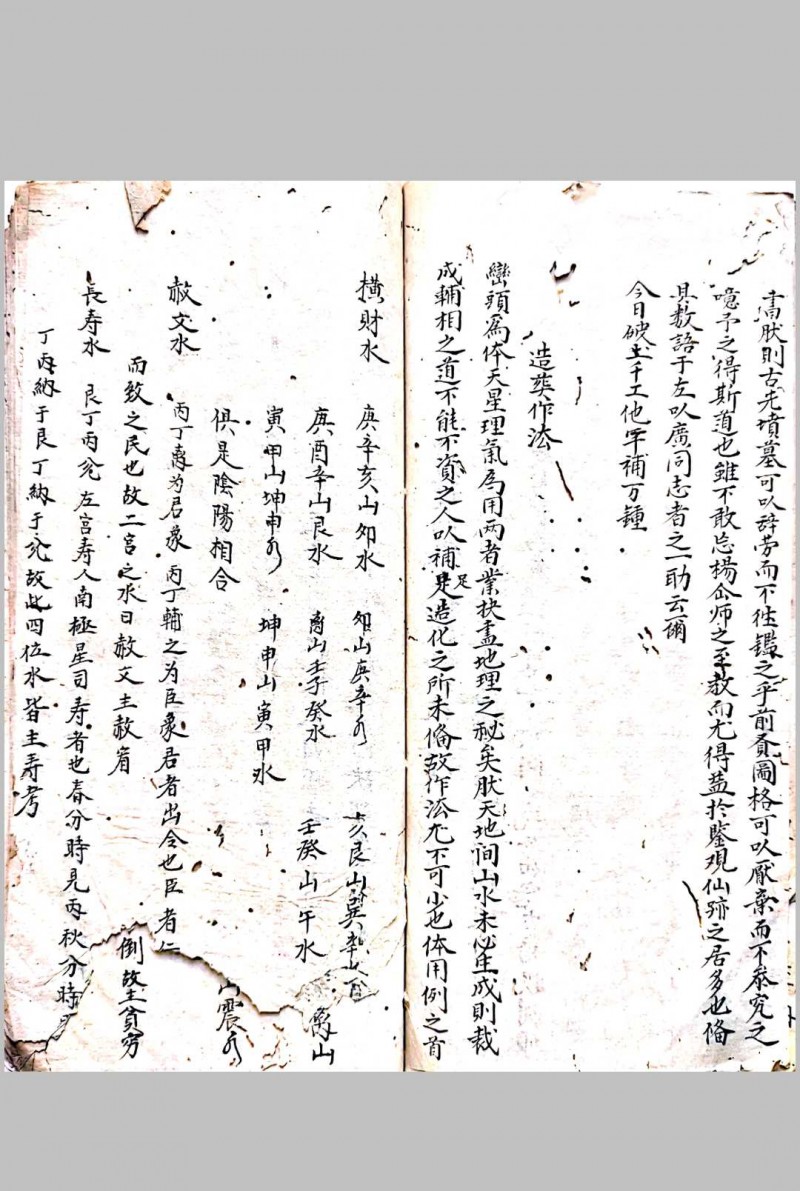 肰則古先墳墓可以辞劳而不徃鑑之乎前賢圖格可以厭棄而不叅究之
噫予之得斯道也雖不敢忘楊仚师之至教而尤得益於鑒观仙跡之居多也俻
具数語于左以廣同志者之一助云爾
今日破土千工他年補万鍾
造葬作法
巒頭為体天星理氣為用两者業抉盡地理之秘矣肰天地间山水未必生成則裁
成輔相之道不能不資之人以補足造化之所未俻故作法尤不可少也体用例之首
橫財水
庚辛亥山卯水 卯山庚辛水 亥艮山巽
庚酉辛山艮水 离山壬子癸水 壬癸山午水 离山
寅甲山坤申水 坤申山寅甲水 震水
俱是陰陽相合
赦文水
丙丁离为君象丙丁輔之为臣象君者出令也臣者仁
而致之民也故二宫之水曰赦文主赦宥 倒故主貧穷
長寿水
艮丁丙兊左宫寿人南極星司寿者也春分時見丙秋分時
丁丙納于艮丁納于兊故此四位水皆主寿考